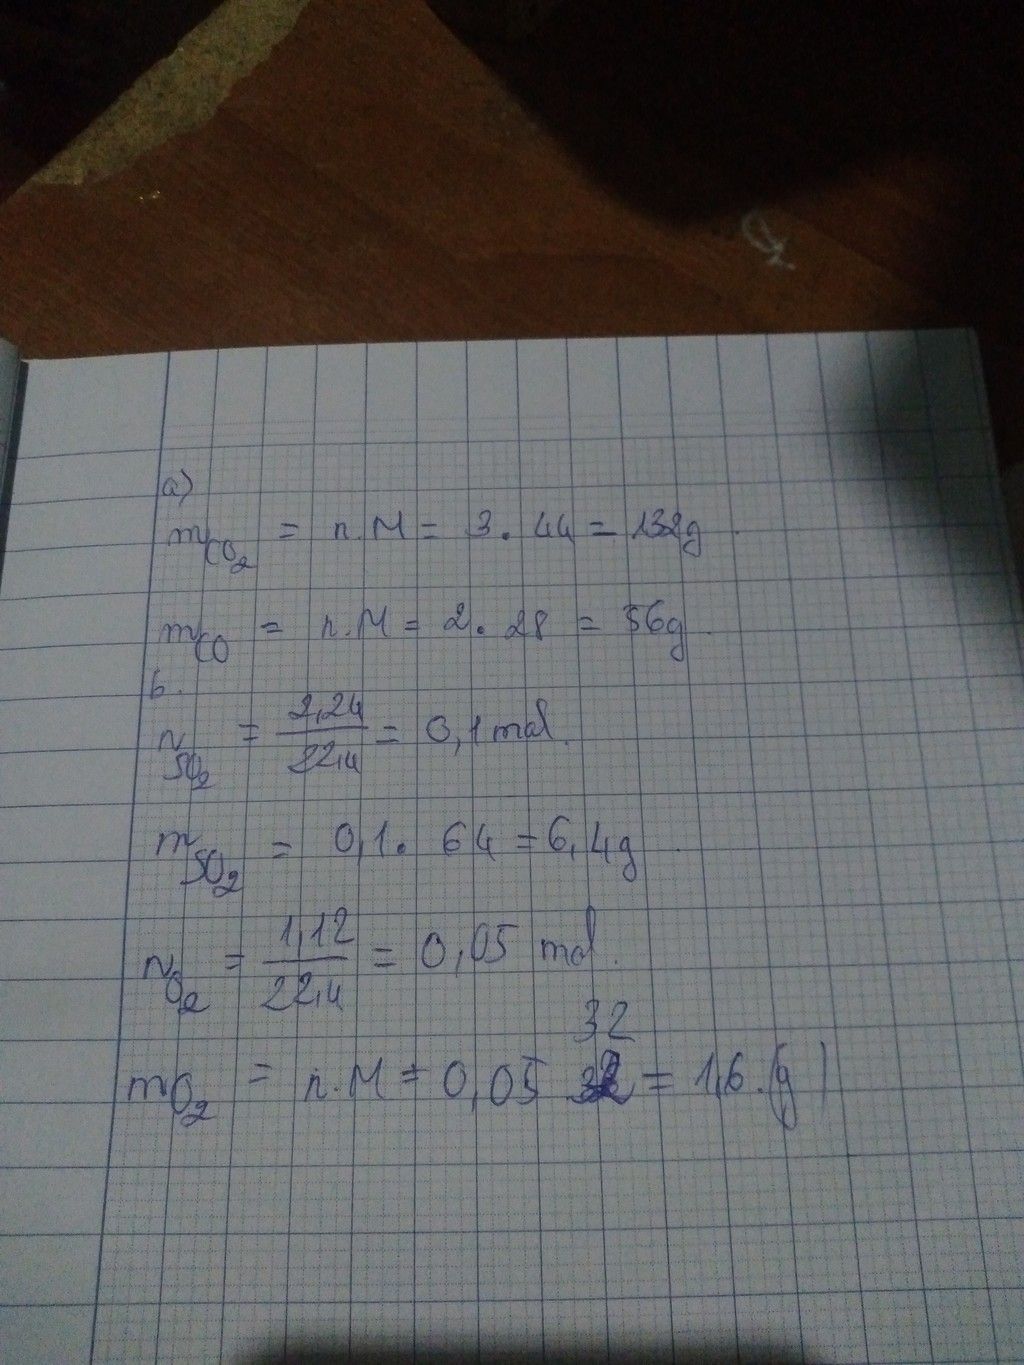 a)
mCO₂ = n.M = 3. 44 = 132g.
mCO = n.M = 2. 28 = 56g.
b.
nSO₂ = 2,24/22,4 = 0,1 mol.
mSO₂ = 0,1. 64 = 6,4g.
nO₂ = 1,12/22,4 = 0,05 mol.
32
mO₂ = n.M = 0,05 32 = 1,6.(g)